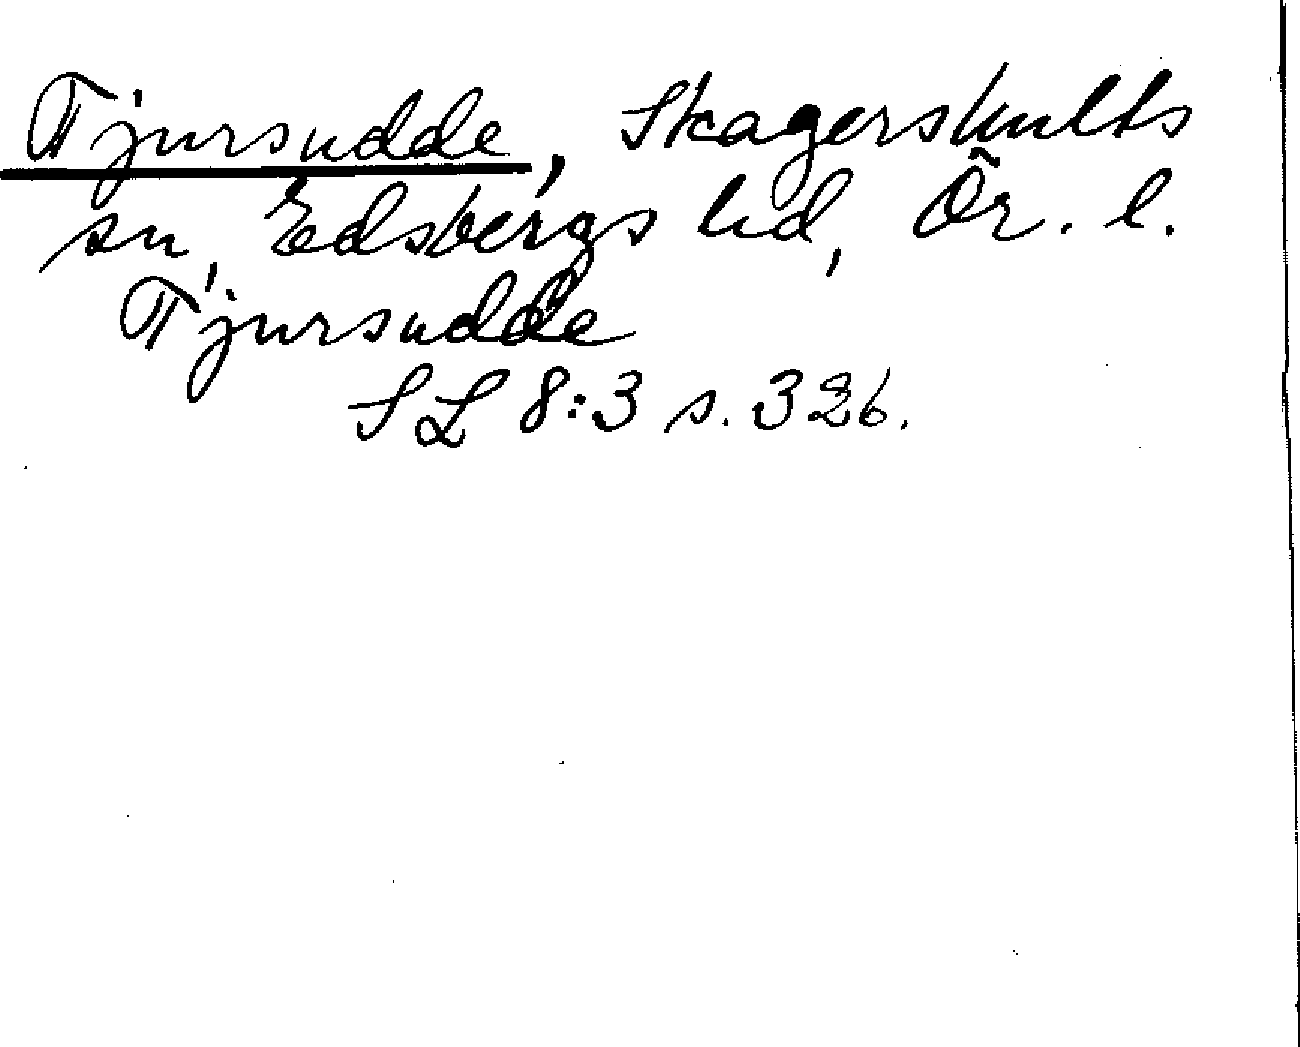 Tjursudde, Skagershults
sn, Edsbergs hd, Ör. l.
Tjursudde
SL 8:3 s. 326.